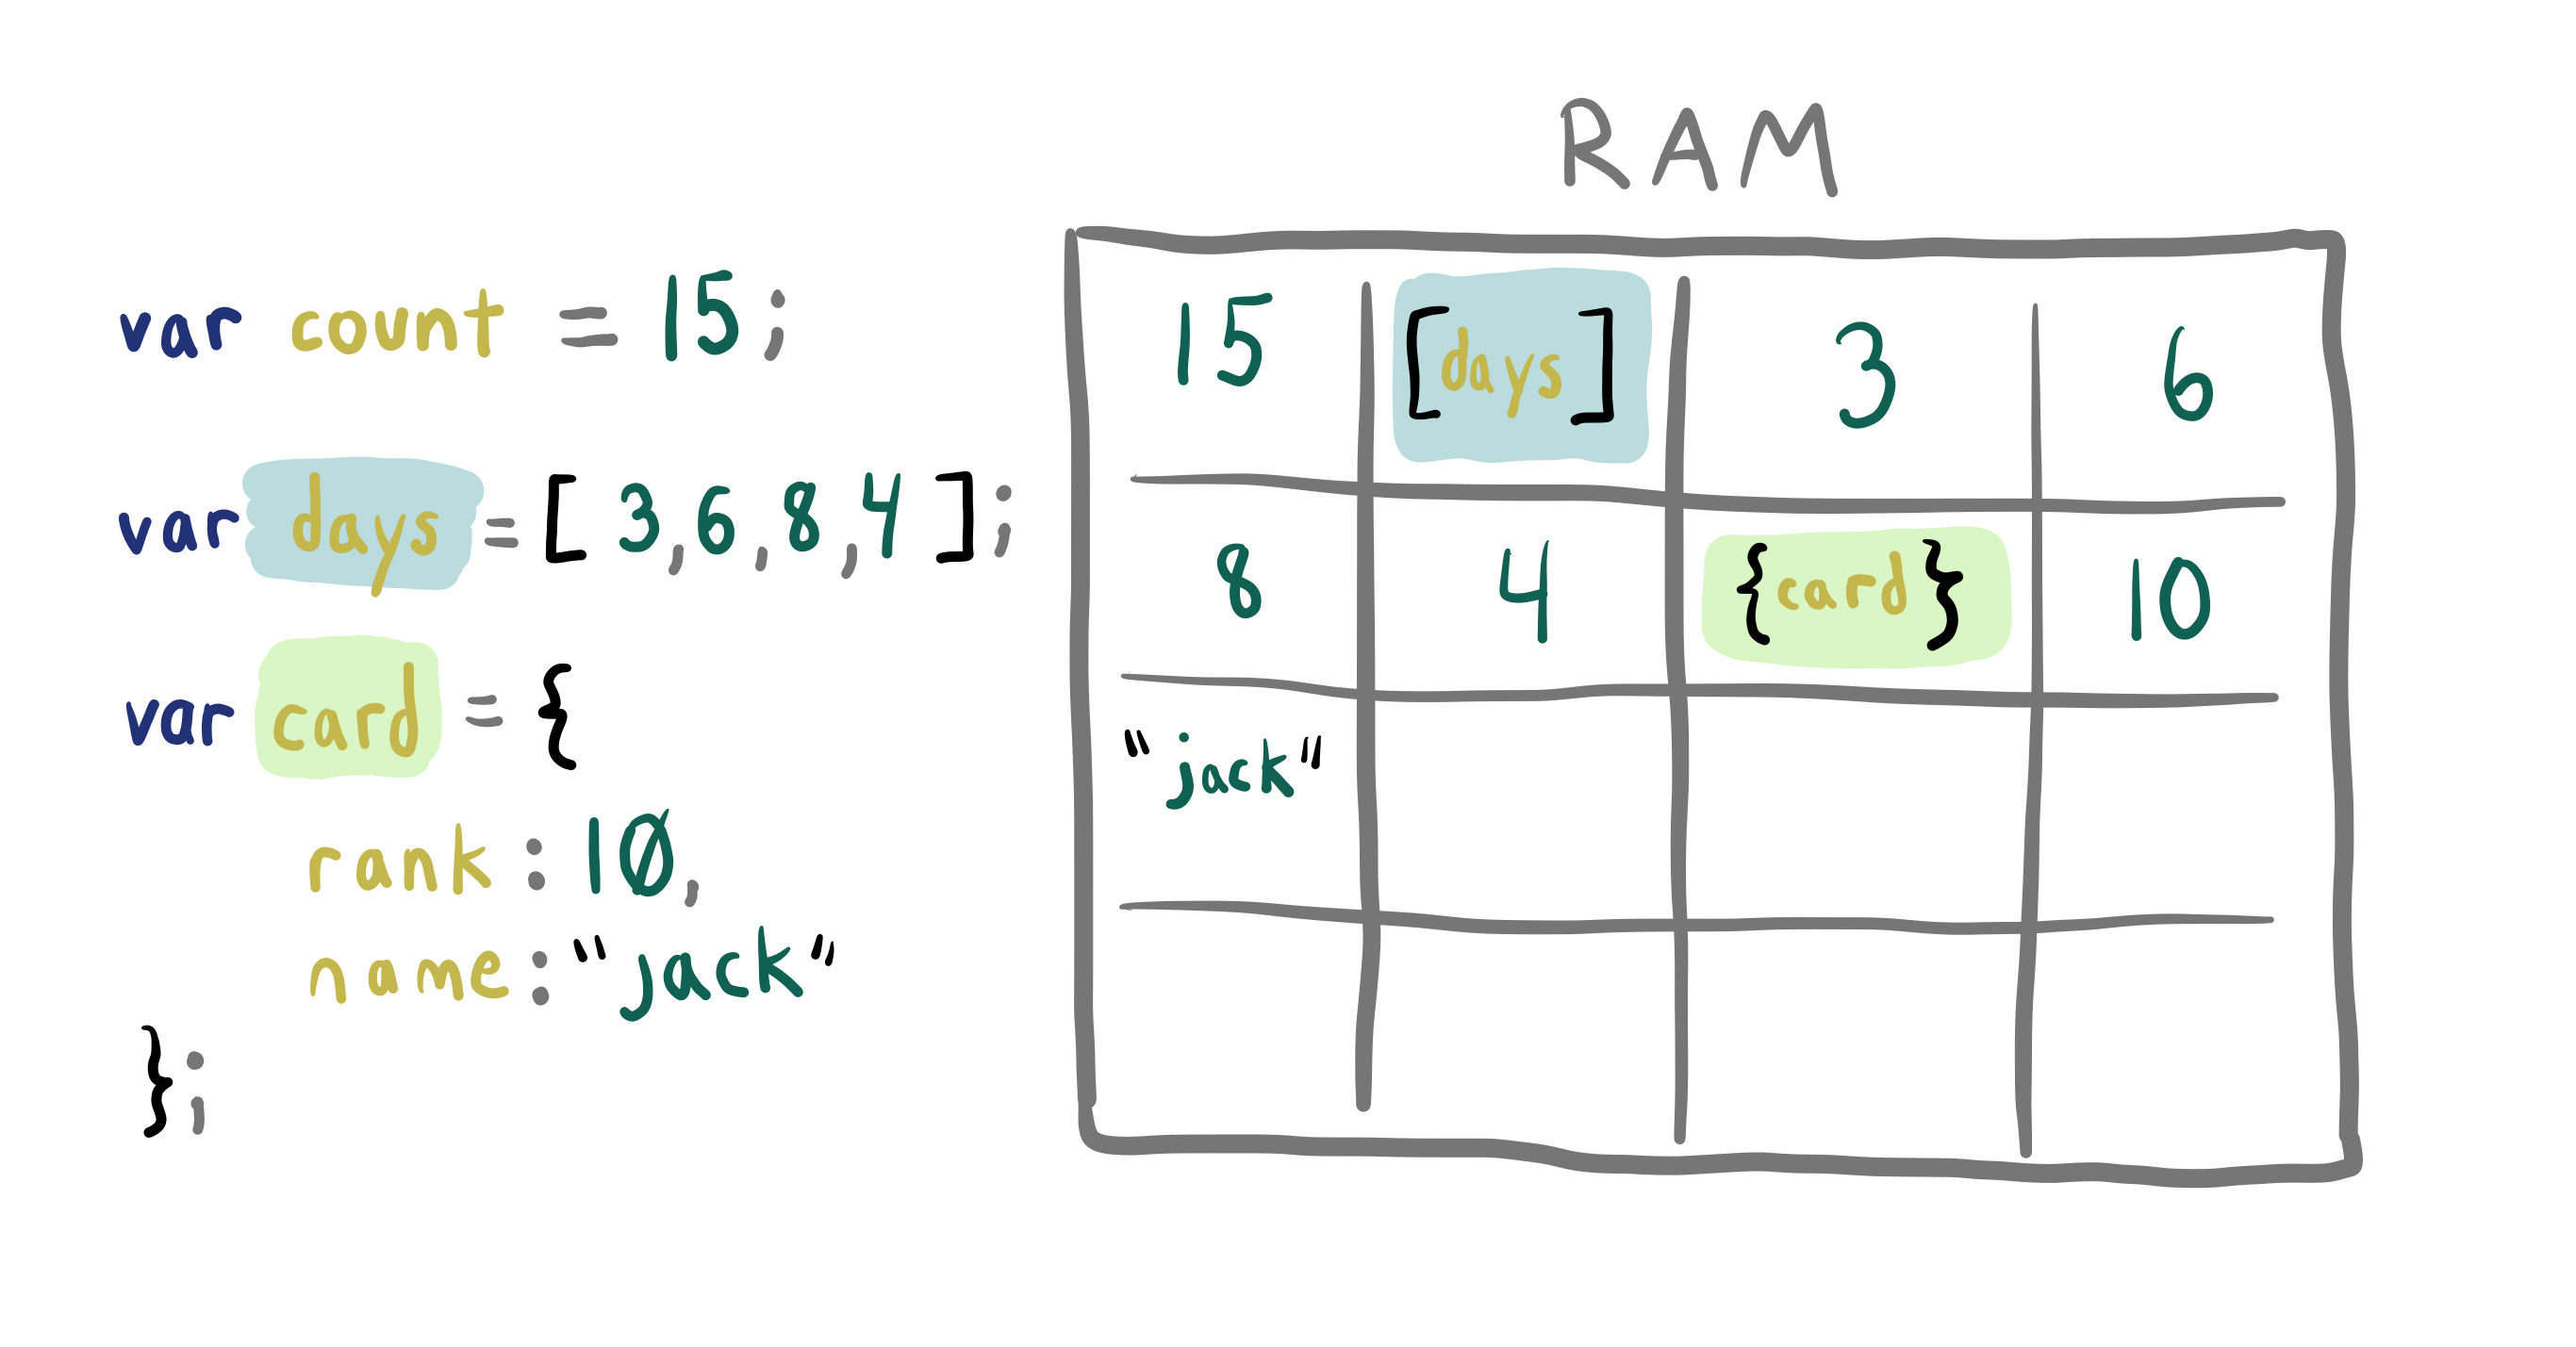 RAM
var count = 15;
var days = [ 3,6,8,4 ];
var card = {
rank : 10,
name : "jack"
};
15 [days] 3 6
8 4 {card} 10
"jack"